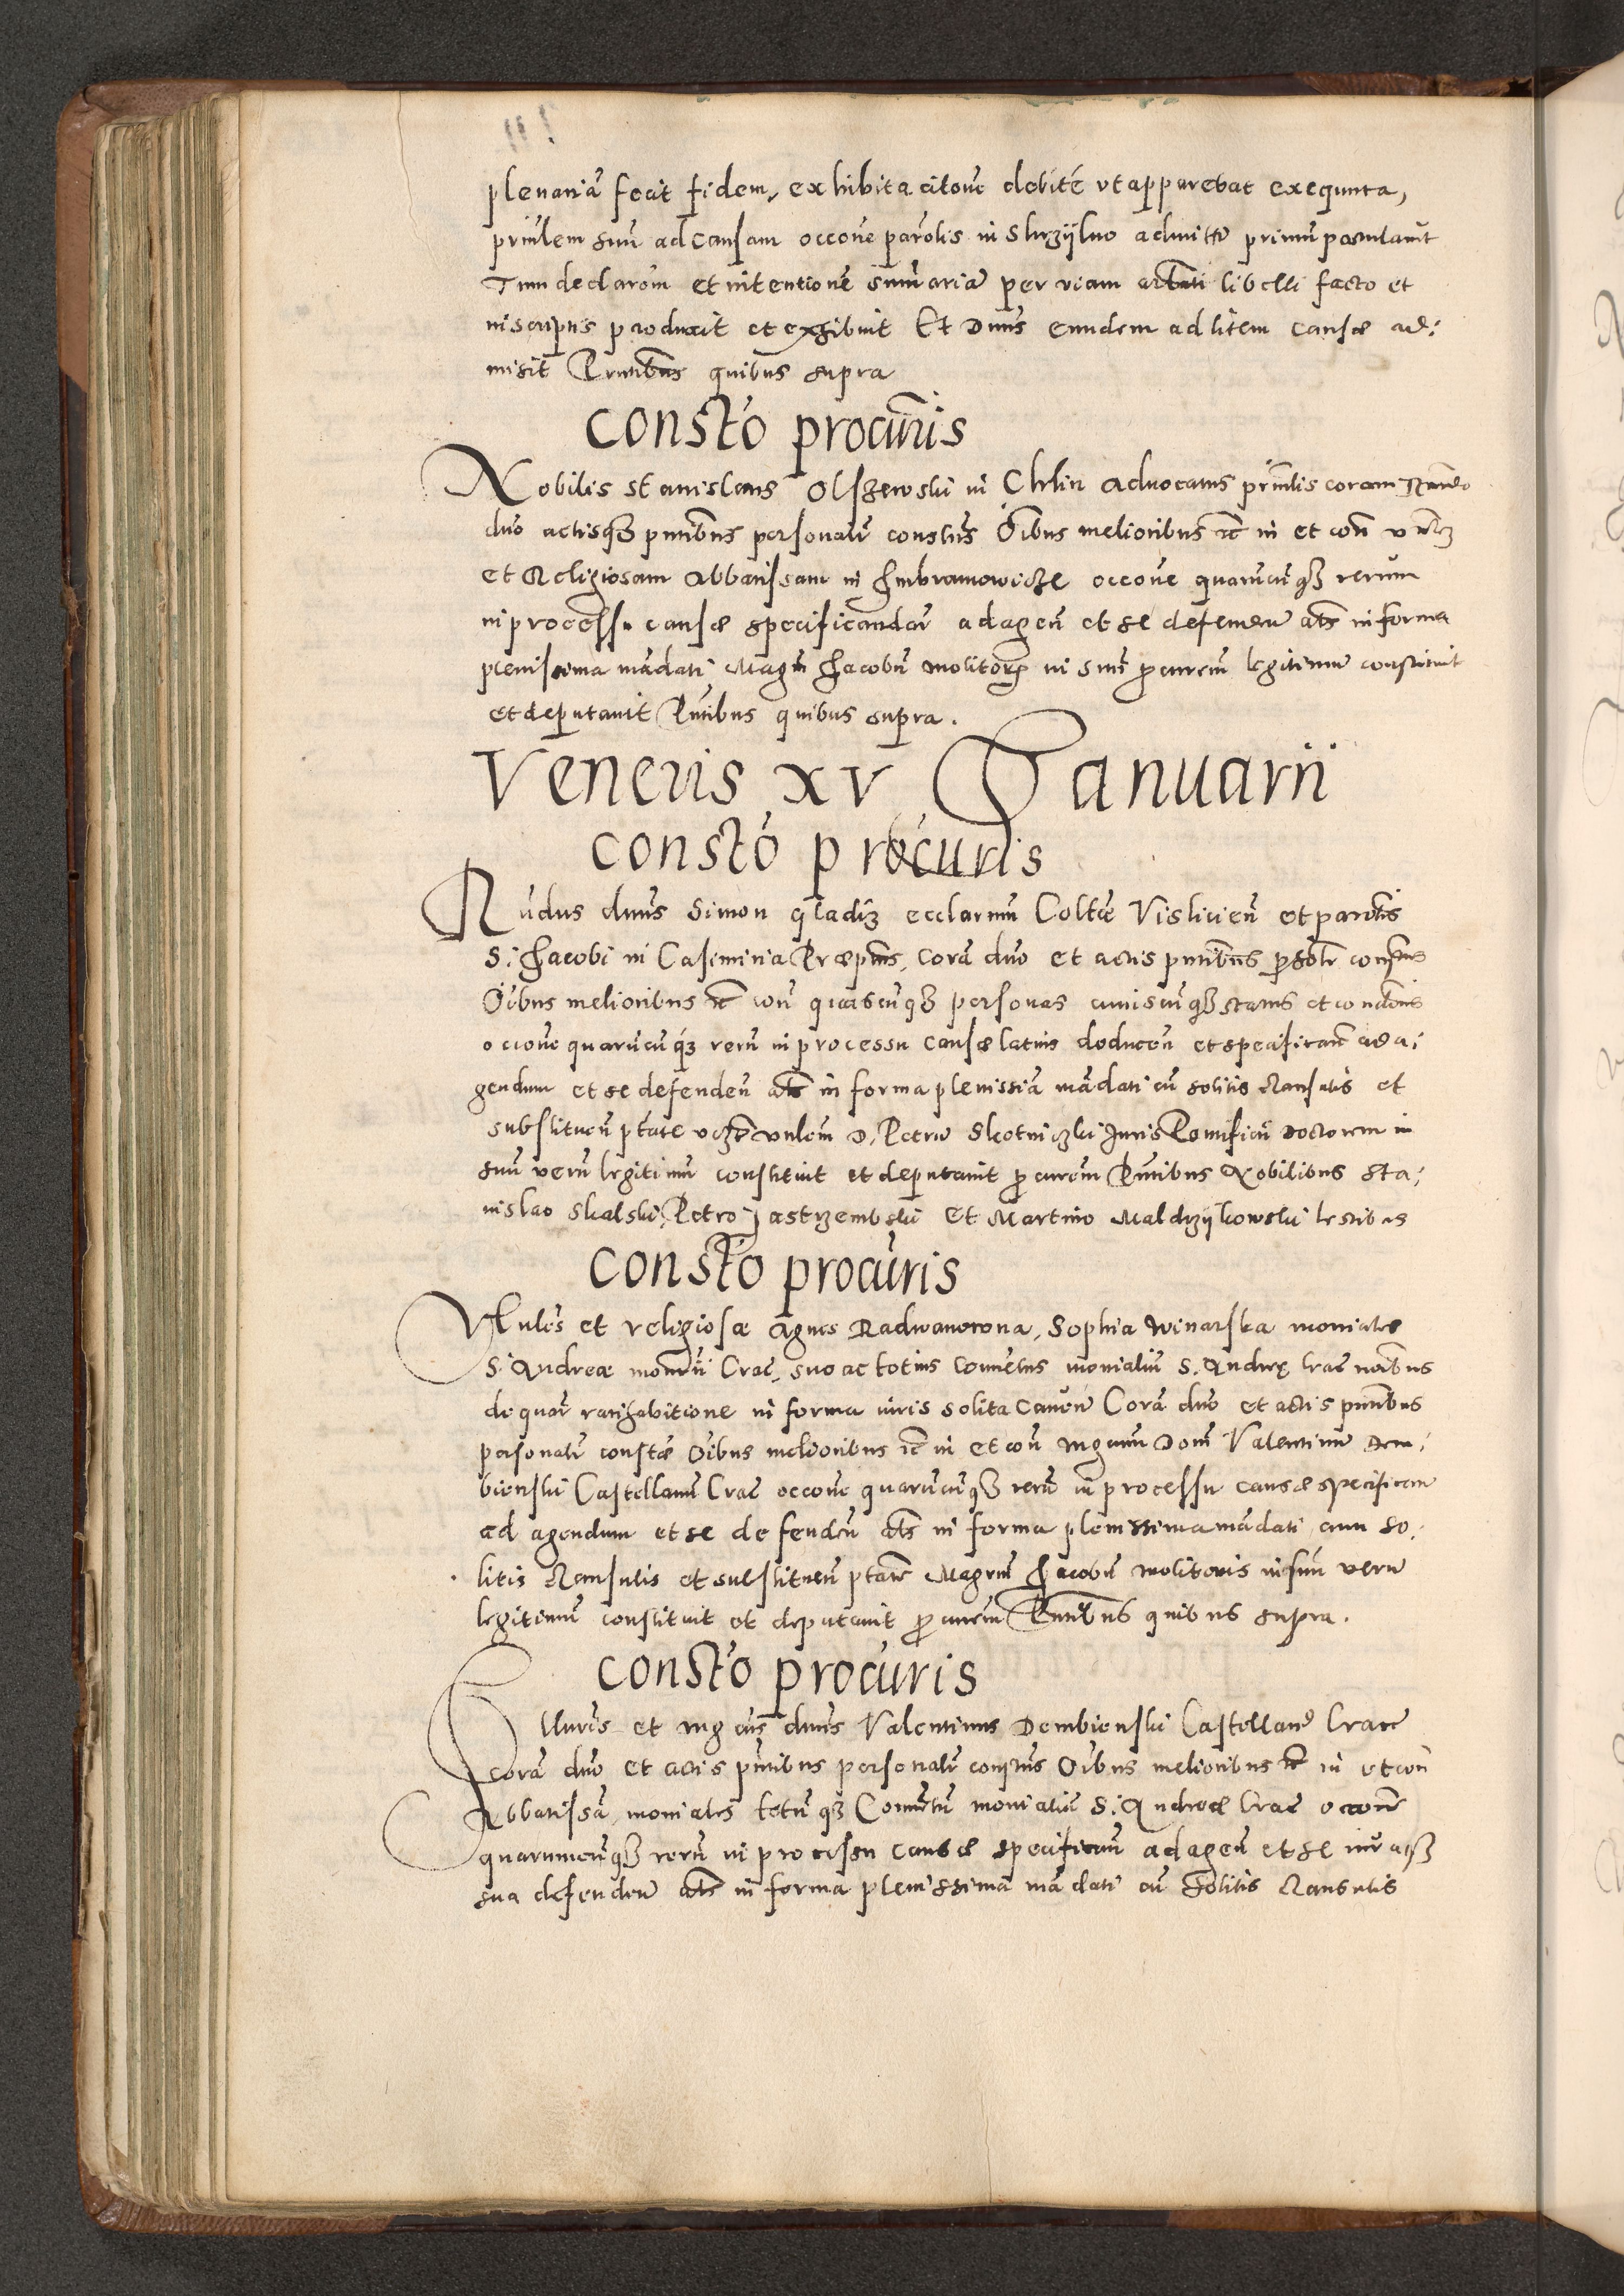 plenariã fecit fidem, exhibita citone debite vt apparebat exequuta,
prinlem suũ ad causam occone parolis in Skrzijlno admitti primũ postulauit
Tum declarom et intentionẽ sumariã per viam artati libelli facto et
in scriptis produxit et exhibuit Et Dnus eundem ad litem causæ ad:
misit Pñtibus quibus supra
Consto procuris
Nobilis Stanislaus Olszewski in Chlin aduocatus coram
dño actisqz pñtibus personali constus Oibus melioribus et in et con
et Religiosam Abbatissam in Imbramowicze occone quarũcũqz rerum
in processu causæ specificandar ad agen et se defenden ats in forma
plenissima mãdati Magrũ Jacobũ Molitoris in suũ procurem legitimũ constituit
et deputauit Pñtibus quibus supra.
Veneris XV Januarii
Consto procuris
Rñdus dnus Simon ecclarum Coltæ Vislicien et parotis
S. Jacobi in Casimiria Præptus, corã dño et actis pñtibus psolr constus
Oibus melioribus etc con quascũqz personas cuiuscũqz status et condonis
occone quarũcũqz rerũ in processu causæ latius deducen et specifican ad a:
gendum et se defenden ats in forma plenissiã mãdati cũ solitis clausulis et
substituen ptate D. Petrũ Skotniczki Juris Pontificii Doctorem in
suũ verũ legitimũ constituit et deputauit procurem Pñtibus Nobilibus Sta:
nislao Skalski, Petro Jastrzembski et Martino Maldrzijkowski testibus
Consto procuris
Vñles et religiosæ Agnes Radwanowna, Sophia Winarska moniales
S. Andreæ Crac, suo ac totius conuetus monialiũ S. Andreę Crac noibus
de quar ratihabitione in forma iuris solita cauen Corã dño et actis pñtibus
personali constæ Oibus melioribus etc in et con Mgcum Dom Valentinũ Dem:
bienski Castellanũ Crac occone quarũcũqz rerũ in processu causæ specifican
ad agendum et se defenden ats in forma plenissima mãdati cum so:
litis clausulis et substituen ptate Magrũ Jacobũ Molitoris in suũ verũ
legitimũ constituit et deputauit procurem Pñtibus quibus supra.
Consto procuris
Illuris et Mgcus dnus Valentinus Dembienski Castellanus Crac
corã dño et actis pñtibus personali constus Oibus melioribus etc in et con
Abbatissã moniales totũqz Conuetũ monialiũ S. Andreæ Crac occone
quarumcũqz rerũ in processu causæ specifican ad agen et se iuraqz
sua defenden ats in forma plenissima mãdati cũ solitis clausulis